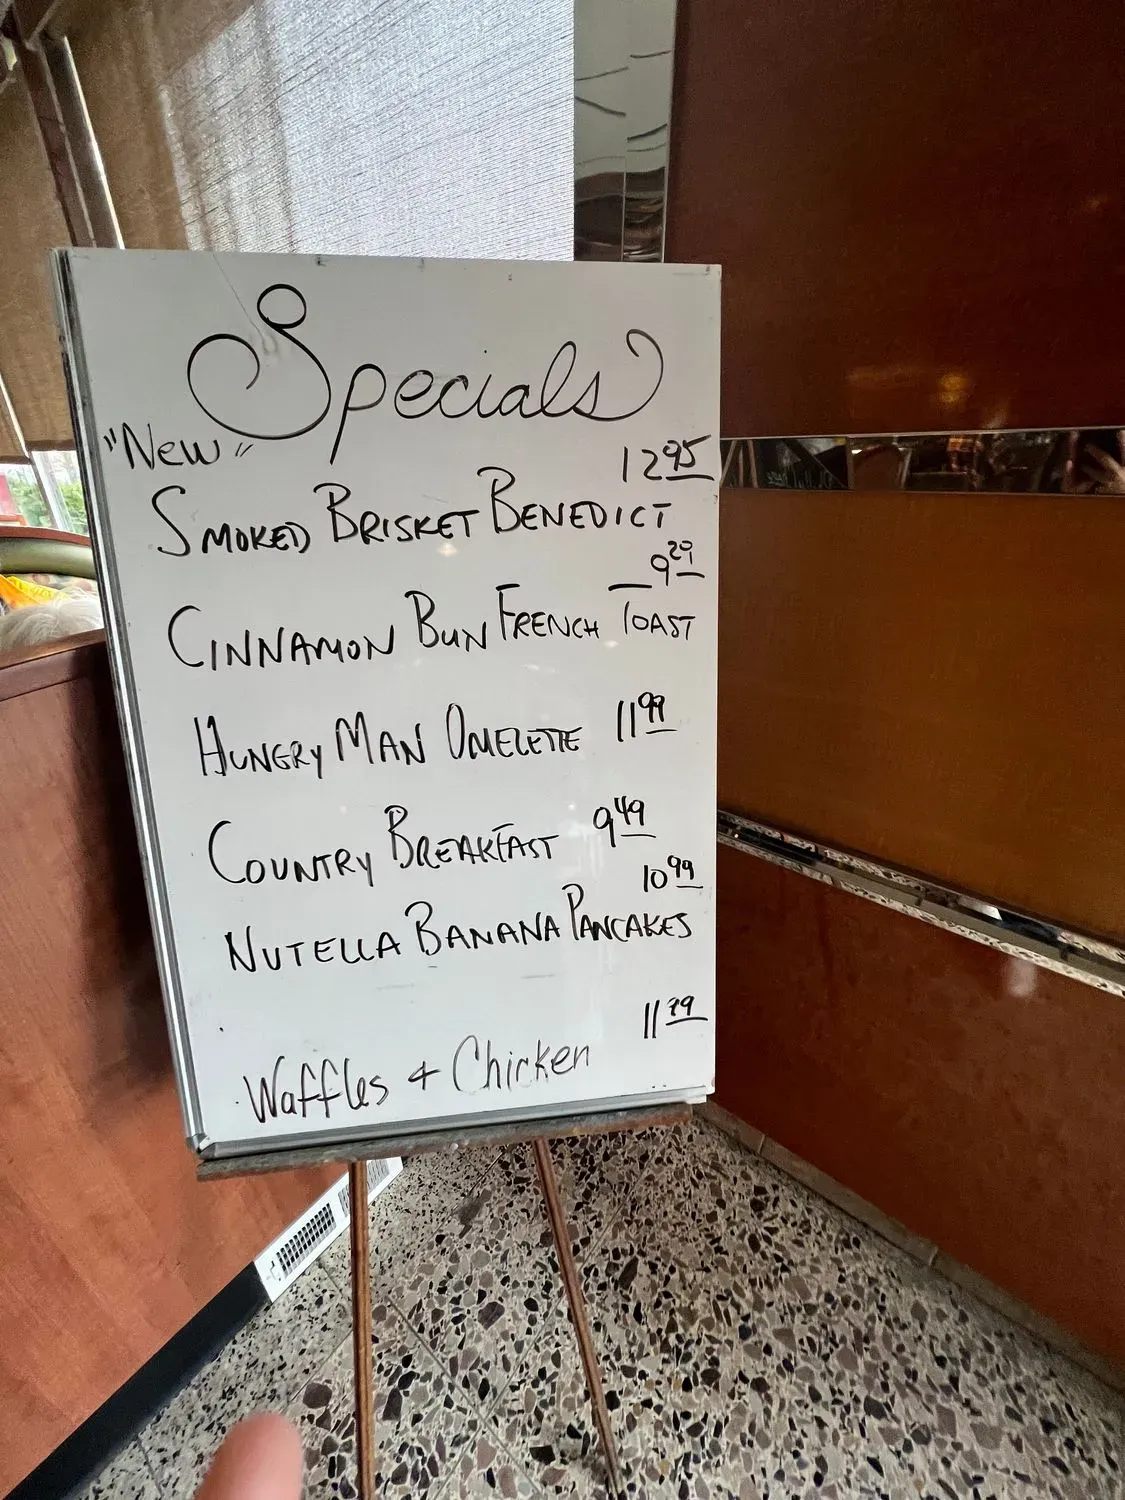 Specials
"New"
12 95
SMOKED BRISKET BENEDICT
9 29
CINNAMON BUN FRENCH TOAST
HUNGRY MAN OMELETTE 11 99
COUNTRY BREAKFAST 9 49
10 99
NUTELLA BANANA PANCAKES
11 79
Waffles & Chicken